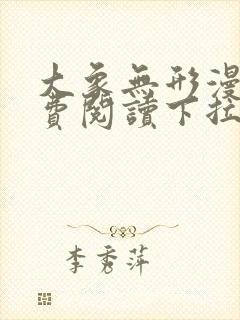 大象無形漫
費閱讀下拉
李秀萍